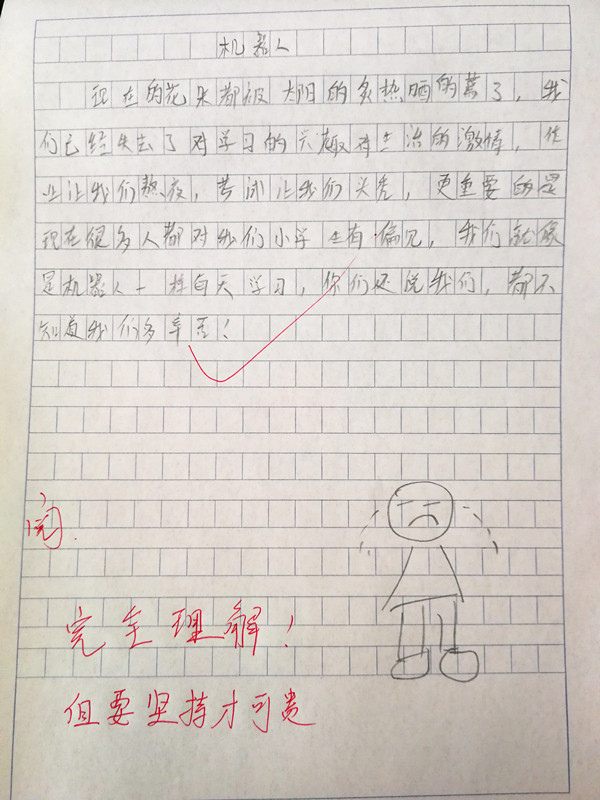 机器人
现在的花朵都被太阳的炙热晒的蔫了，我
们已经失去了对学习的兴趣对生治的激情，作
业让我们熬夜，考试让我们头秃，更重要的是
现在很多人都对我们小学生有偏见，我们就像
是机器人一样白天学习，你们还说我们，都不
知道我们多辛苦！
阅
完全理解！
但要坚持才可贵